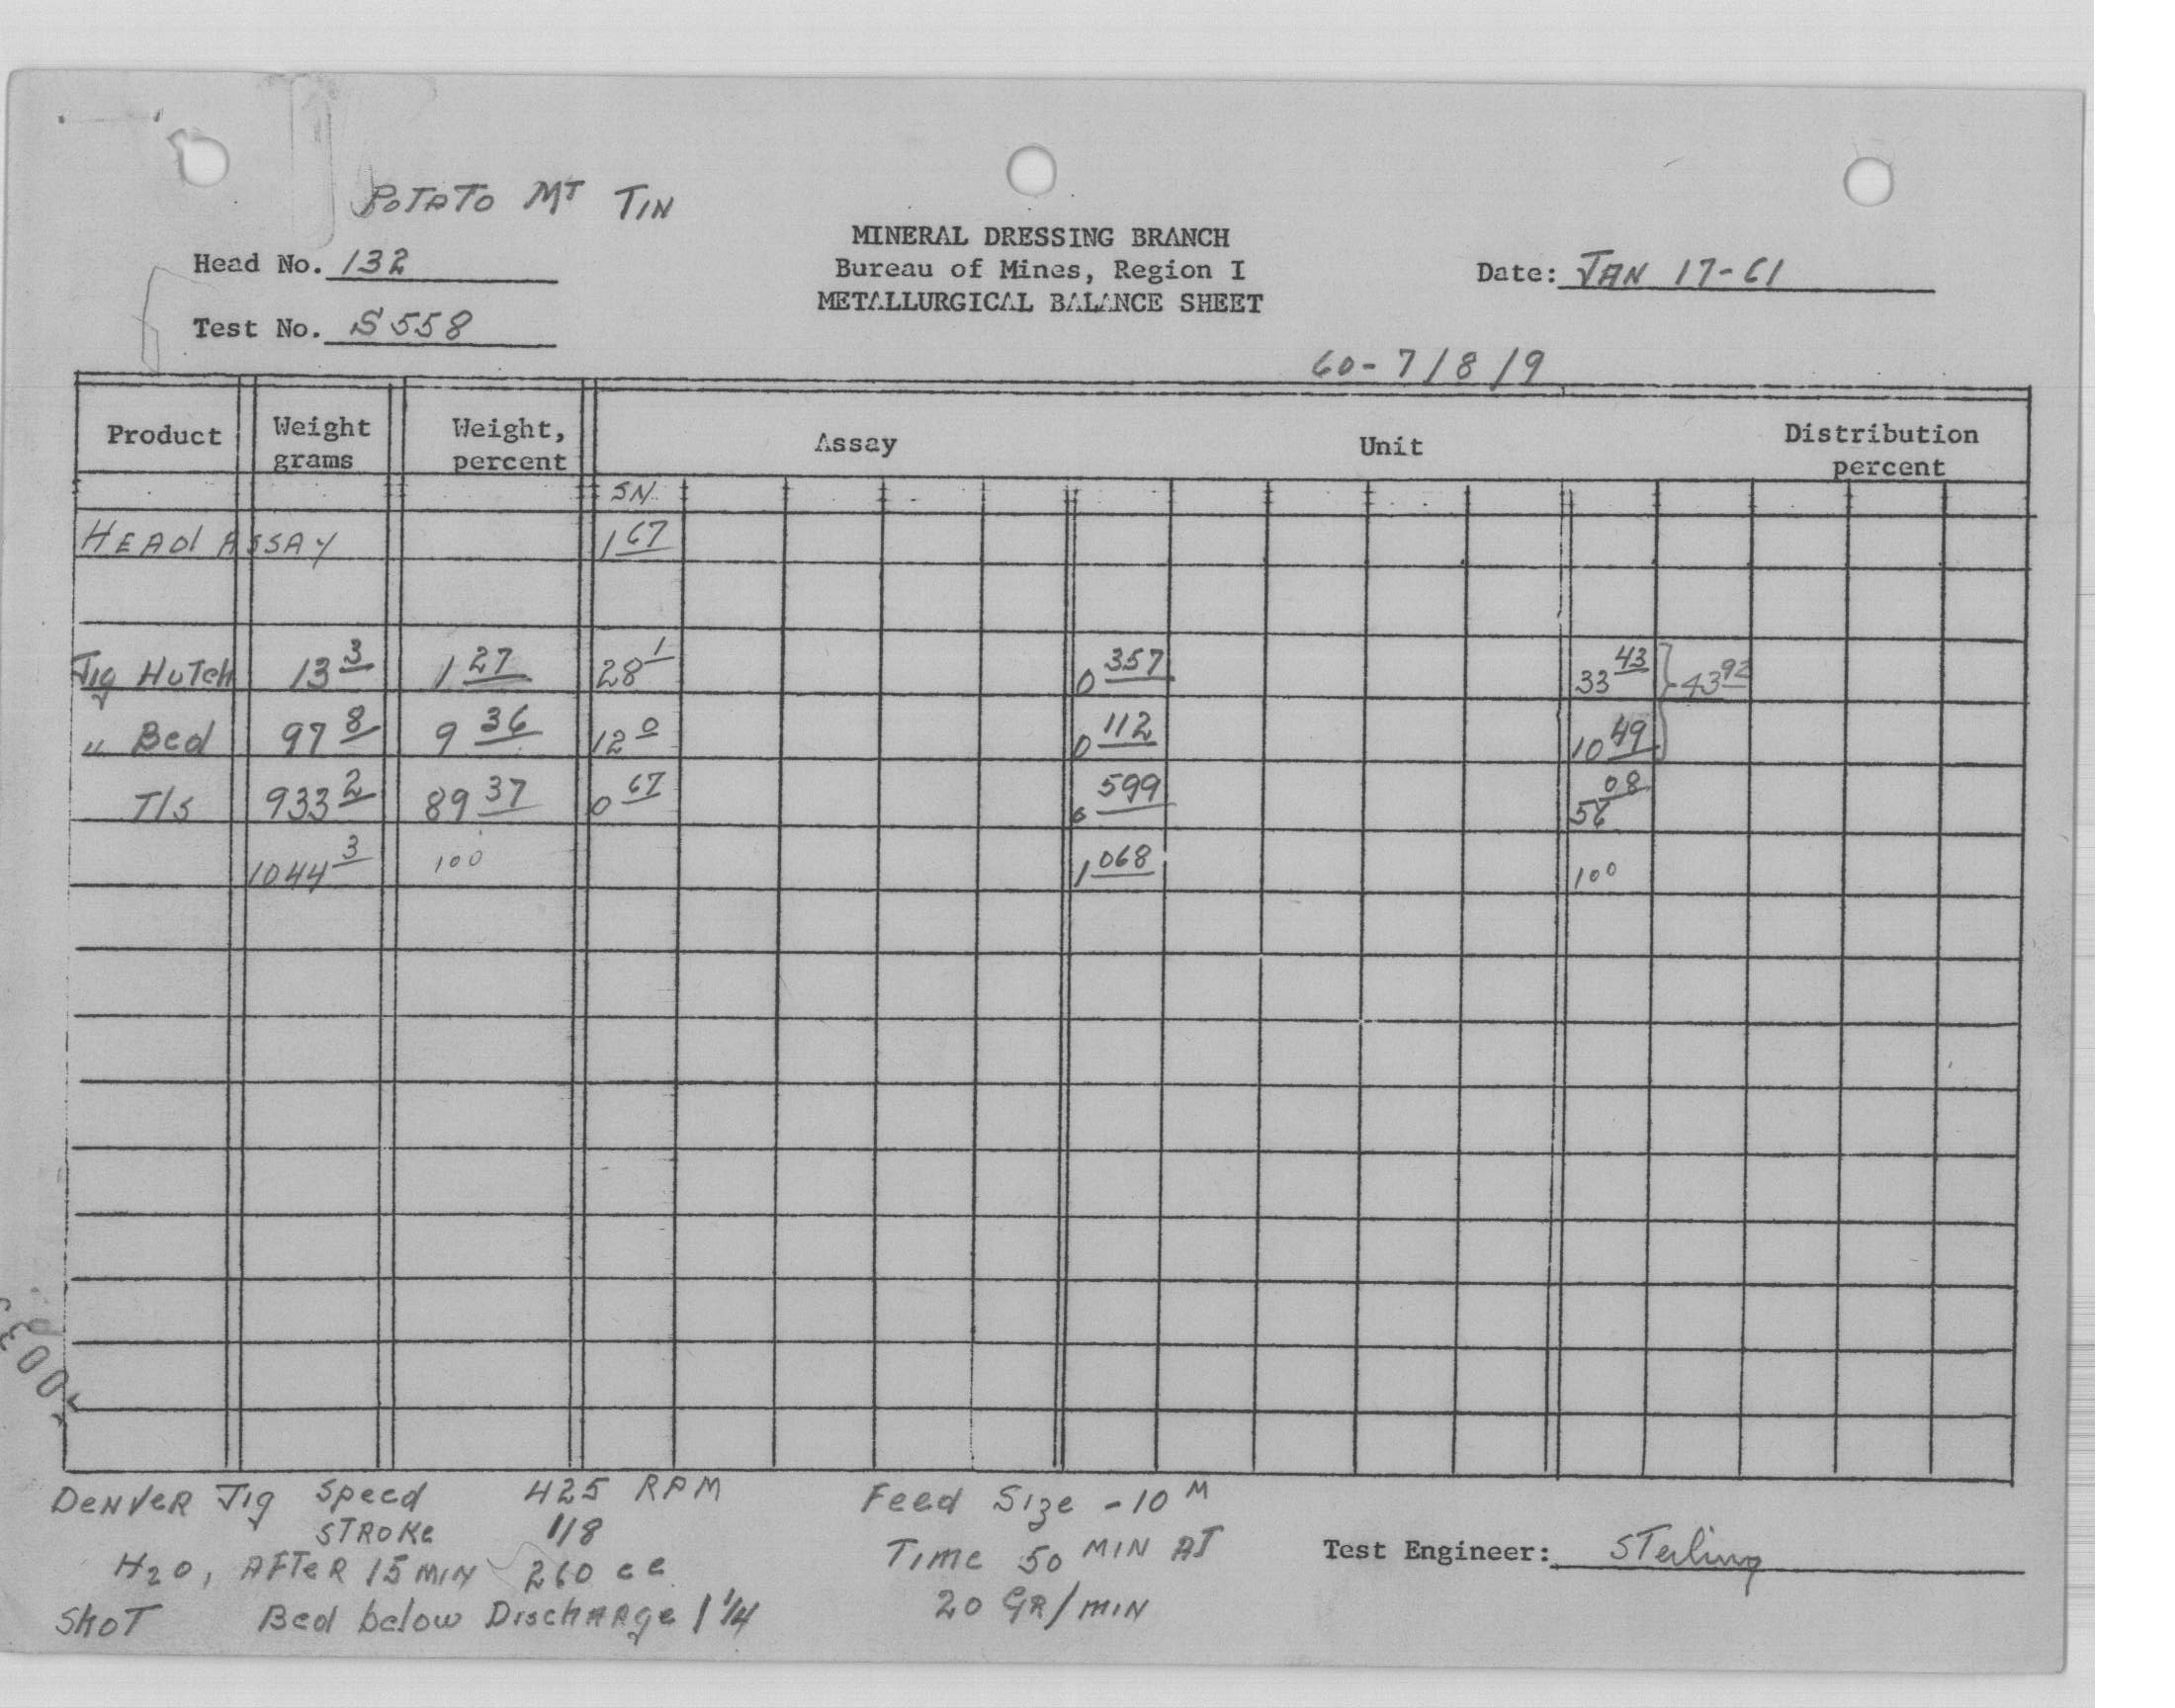 POTATO MT TIN
MINERAL DRESSING BRANCH
Head No. 132
Bureau of Mines, Region I
Date: JAN 17-61
METALLURGICAL BALANCE SHEET
Test No. S558
60-7/8/9
Product Weight grams Weight, percent Assay Unit Distribution percent
SN
HEAD ASSAY 1 67
Jig Hutch 13 3 1 27 28 1 0 357 33 43 43 92
" Bed 97 8 9 36 12 0 0 112 10 49
T/s 933 2 89 37 0 67 0 599 56 08
1044 3 100 1 068 100
DENVER Jig Speed 425 RPM Feed Size -10 M
STROKE 1/8
Time 50 MIN AT
Test Engineer: Sterling
H2O, AFTER 15 MIN 260 cc
20 GR/MIN
SHOT Bed below Discharge 1 1/4